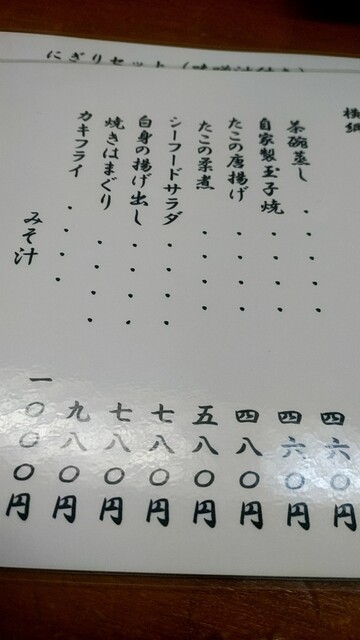 にぎりセット
茶碗蒸し・・・・四六〇円
自家製玉子焼・・・四六〇円
たこの唐揚げ・・・四八〇円
たこの柔煮・・・・五八〇円
シーフードサラダ・・・七八〇円
白身の揚げ出し・・・七八〇円
焼きはまぐり・・・九八〇円
カキフライ・・・・一〇〇〇円
みそ汁